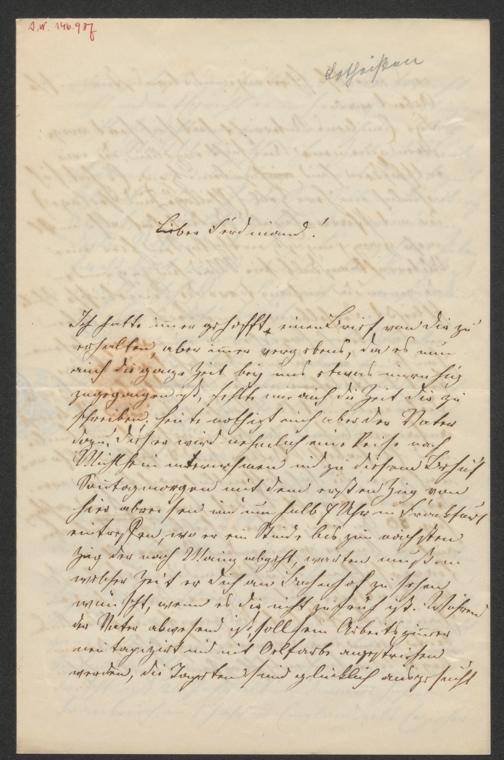 A.W. 146.987
Lieber Ferdinand!
Ich hatte immer gehofft, einen Brief von dir zu
erhalten, aber immer vergebens, da es nun
auch die ganze Zeit bey uns etwas unruhig
zugegangen ist, fehlte mir auch die Zeit dir zu
schreiben, heute nöthigt mich aber der Vater
dazu, dieser wird nehmlich eine Reise nach
unternehmen und zu diesem Behuf
Sontagmorgen mit dem ersten Zug von
hier abreisen und um halb 7 Uhr in Frankfurt
eintreffen, wo er ein Stunde bis zum nächsten
Zug der nach Mainz abgeht, warten muß in
welcher Zeit er dich am Bahnhof zu sehen
wünscht, wenn es dir nicht zu früh ist. Während
der Vater abwesend ist, soll sein Arbeitszimmer
neu tapezirt und mit Oelfarbe angestrichen
werden, die Tapeten sind glücklich ausgesucht